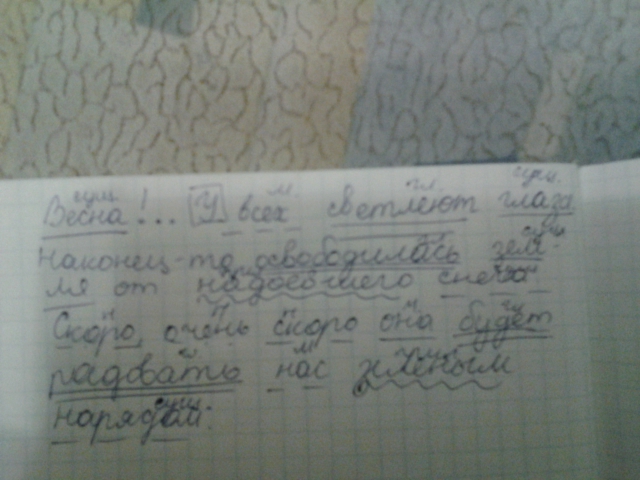 Весна!... У всех светлеют глаза
наконец-то освободилась зем
ля от надоевшего снега
Скоро, очень скоро она будет
радовать нас зелёным
нарядом.